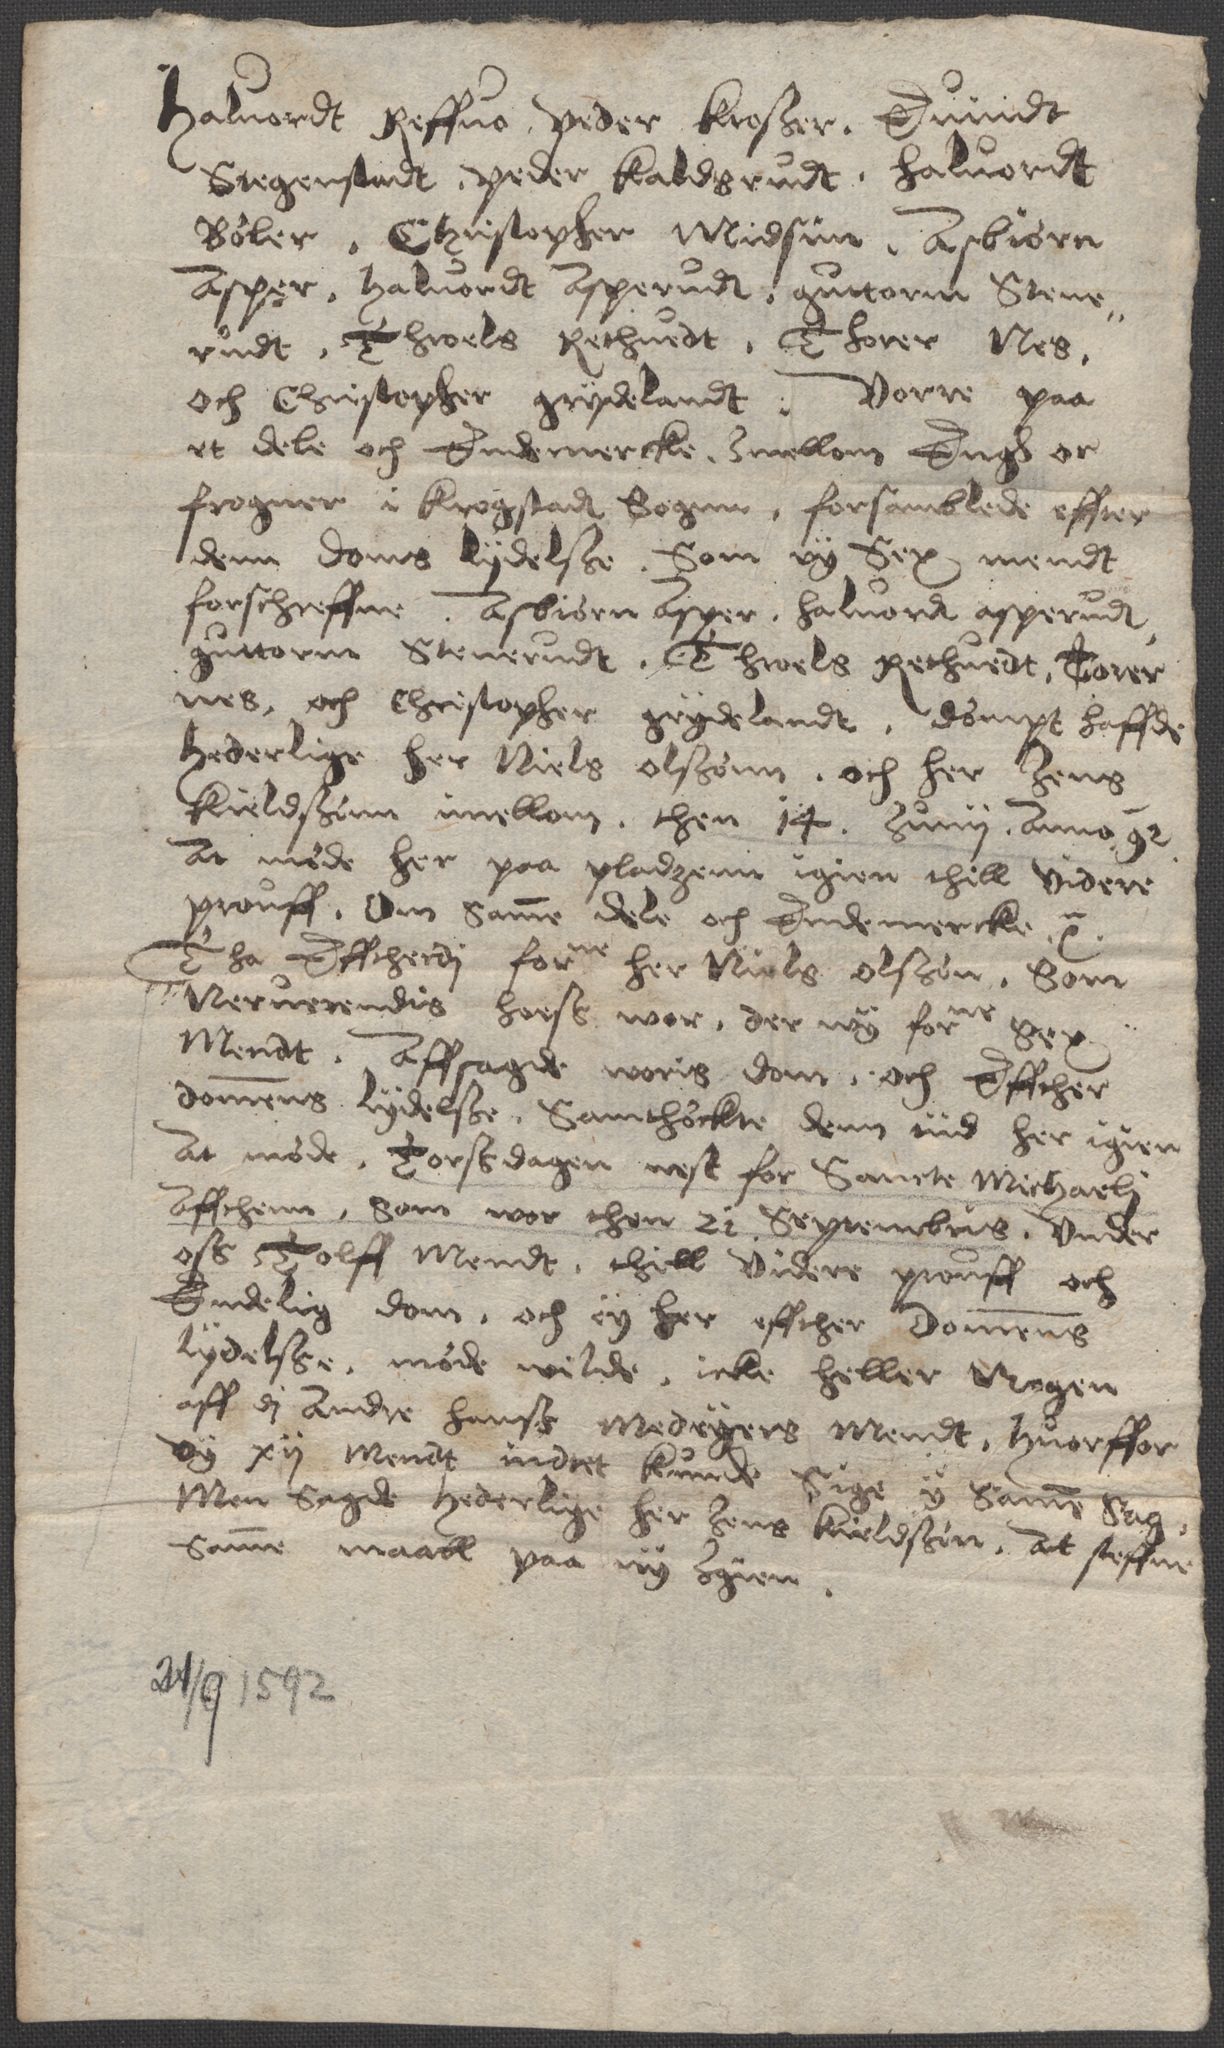 Haluordt Reffuo, peder Krosser. Euindt
Stegenstadt, peder Kaldsrudt, haluordt
Böler, Christopher Midsün, Asbiörn
Asper, haluordt Asperudt, guttorm Stene„
rudt, Throels Rethuedt, Thorer Nes,
och Christopher grydelandt, Vorre paa
et dele och Endemercke, imellom Engh or
frogner i Krogstadt Sognn, forsamblede effter
denn doms lÿdelsse, Som vÿ Sex mendt
forschreffne, Asbiörn Asper, haluordt asperudt,
guttorm Stenerudt, Throels Rethuedt, Torer
nes, och Christopher grydelandt, dömpt haffde
hederlige her Niels olssönn, och her Jens
Kieldssönn imellom, then 14. Junij Anno 92
At möde her paa pladzenn igien thill Videre
prouff, Om Samme dele och Endemercke
Tha Effterdj forne her Niels olssön, Som
Neruerendis hoess wor, der wÿ forne Sex
Mendt, Affsagde woris dom, och Effther
domens lÿdelsse, Samthöckte denn tiid her igien
At möde, Torssdagen nest for Sancte Michaelj
Affthenn, Som wor then 21 Septembris, Vnder
oss Tolff Mendt, thill Videre prouff och
Endelig dom, och ey her effther Domens
lÿdelsse, möde wilde, icke heller Nogen
aff dj Andre hanss Medeÿers Mendt, huorffor
vÿ xij Mendt indtet kunde Sige ÿ Samme Sag,
Men Sagde hederlige her Jens Kieldssön, At steffne
Samme maall paa nÿ Igien.
21/9 1592